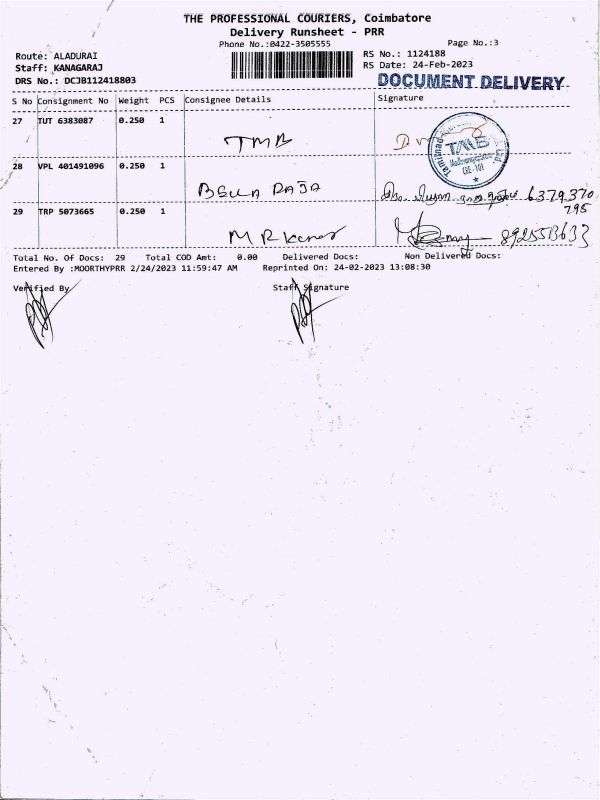 THE PROFESSIONAL COURIERS, Coimbatore
Delivery Runsheet - PRR
Phone No.:0422-3505555
Page No.:3
Route: ALADURAI
RS No.: 1124188
Staff: KANAGARAJ
RS Date: 24-Feb-2023
DRS No.: DCJB112418803
DOCUMENT DELIVERY
S No Consignment No Weight PCS Consignee Details Signature
27 TUT 6383087 0.250 1
TMB
TMB
28 VPL 401491096 0.250 1
BELLA RAJA
6379370
795
29 TRP 5073665 0.250 1
M R Kumar
8925513633
Total No. Of Docs: 29 Total COD Amt: 0.00 Delivered Docs: Non Delivered Docs:
Entered By :MOORTHYPRR 2/24/2023 11:59:47 AM Reprinted On: 24-02-2023 13:08:30
Verified By Staff Signature